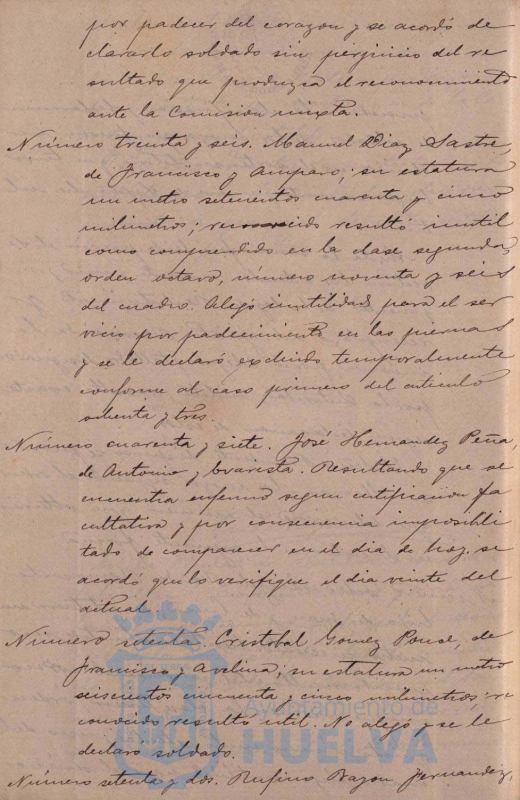 por padecer del corazon y se acordó de
clararlo soldado sin perjuicio del re
sultado que produzca el reconocimiento
ante la Comision mixta.
Número treinta y seis. Manuel Diaz Sastre,
de Francisco y Amparo; su estatura
un metro setecientos cuarenta y cinco
milimetros; reconocido resultó inutil
como comprendido en la clase segunda,
orden octavo, número noventa y seis
del cuadro. Alegó inutilidad para el ser
vicio por padecimiento en las piernas
y se le declaró excluido temporalmente
conforme al caso primero del articulo
ochenta y tres.
Número cuarenta y siete. José Hernandez Peña,
de Antonio y Evarista. Resultando que se
encuentra enfermo segun certificacion fa
cultativa y por consecuencia imposibli
tado de comparecer en el dia de hoy. se
acordó que lo verifique el dia veinte del
actual.
Número setenta. Cristobal Gomez Ponce, de
Francisco y Avelina; su estatura un metro
seiscientos cincuenta y cinco milimetros: re
conocido resultó util. No alegó y se le
declaró soldado.
Número setenta y dos. Rufino Bazon Fernandez,
Ayuntamiento de
HUELVA